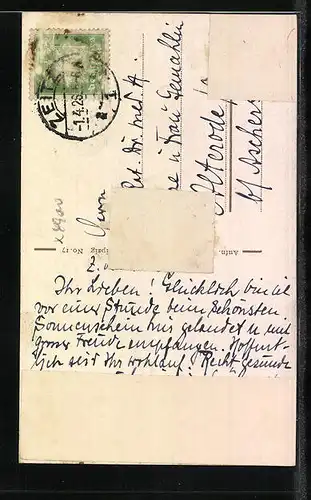 ZEITZ
-1.4.26
Herrn
Dr. med. A.
u Frau Gemahlin
Alterode
b/ Aschers
x 8900
Aufn.
No. 17
Ihr Lieben! Glücklich bin ich
vor einer Stunde beim schönsten
Sonnenschein hier gelandet u mit
grosser Freude empfangen. Hoffent-
lich seid Ihr wohlauf! Recht gesunde